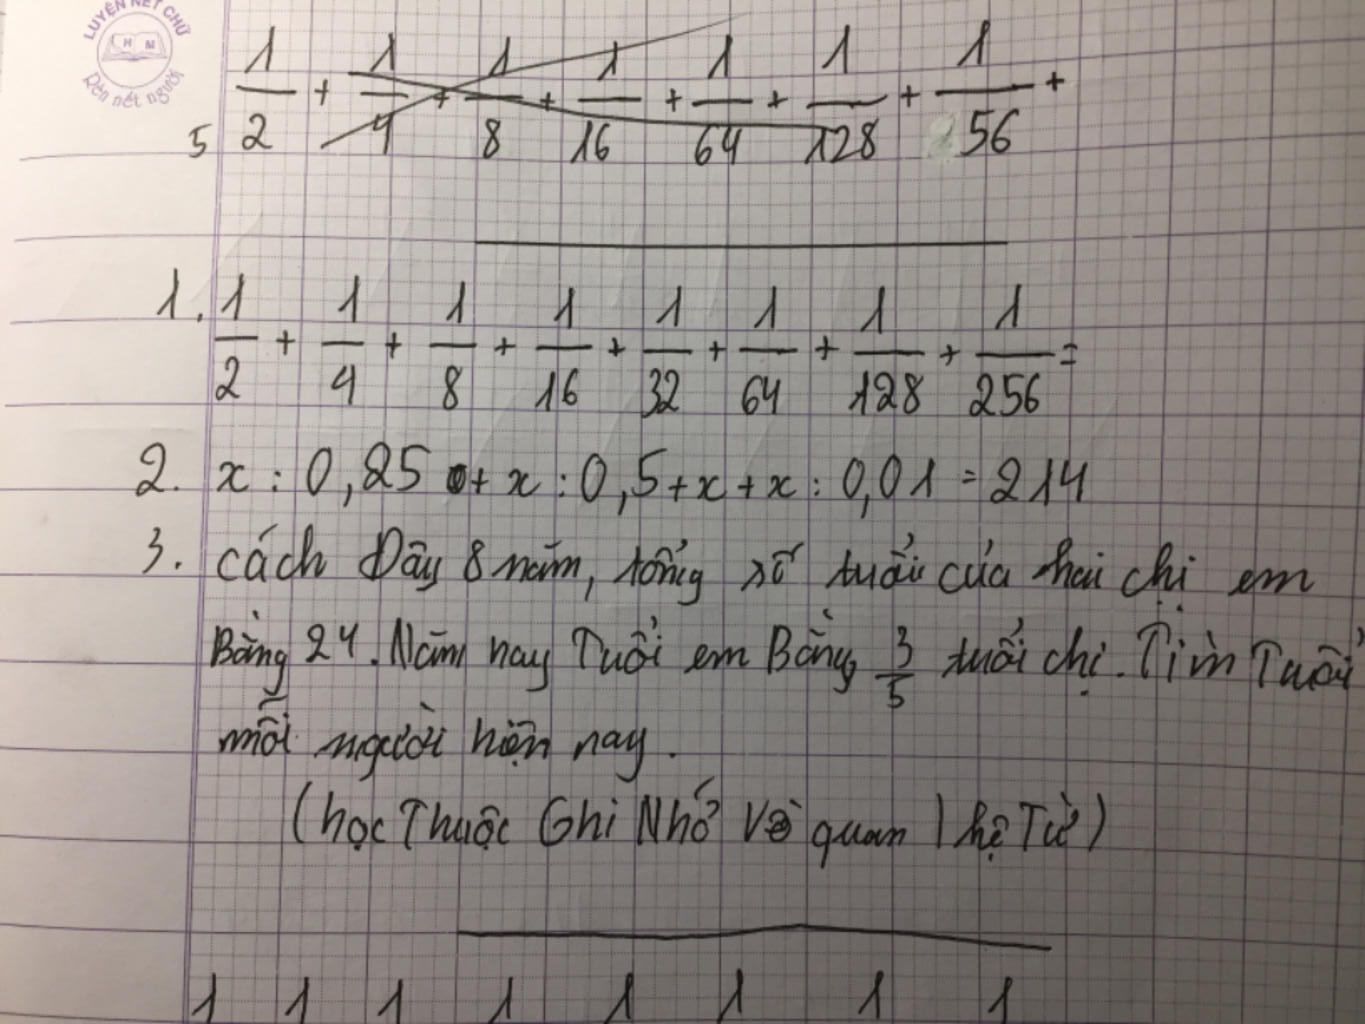 LUYỆN NÉT CHỮ
H M
Rèn nết người
5 1/2 + 1/4 + 1/8 + 1/16 + 1/64 + 1/128 + 1/256 +
1. 1/2 + 1/4 + 1/8 + 1/16 + 1/32 + 1/64 + 1/128 + 1/256 =
2. x : 0,25 + x : 0,5 + x + x : 0,01 = 214
3. cách Đây 8 năm, tổng số tuổi của hai chị em
Bằng 24. Năm nay Tuổi em Bằng 3/5 tuổi chị. Tìm Tuổi
mỗi người hiện nay.
(học Thuộc Ghi Nhớ Về quan hệ Từ)
1 1 1 1 1 1 1 1